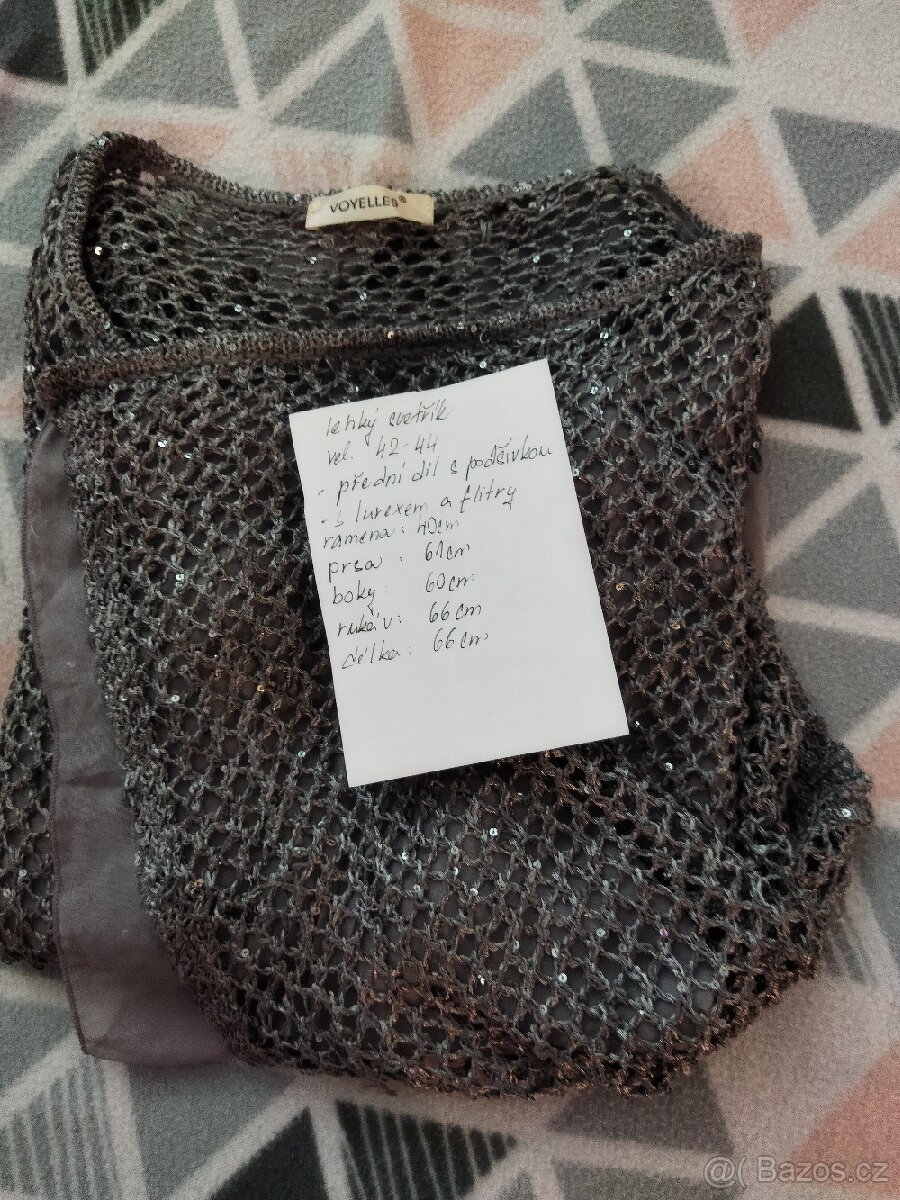 VOYELLES®
lehký svetřík
vel. 42-44
- přední díl s podšívkou
- s lurexem a flitry
ramena: 40cm
prsa: 61cm
boky: 60cm
rukáv: 66cm
délka: 66cm
@( Bazos.cz